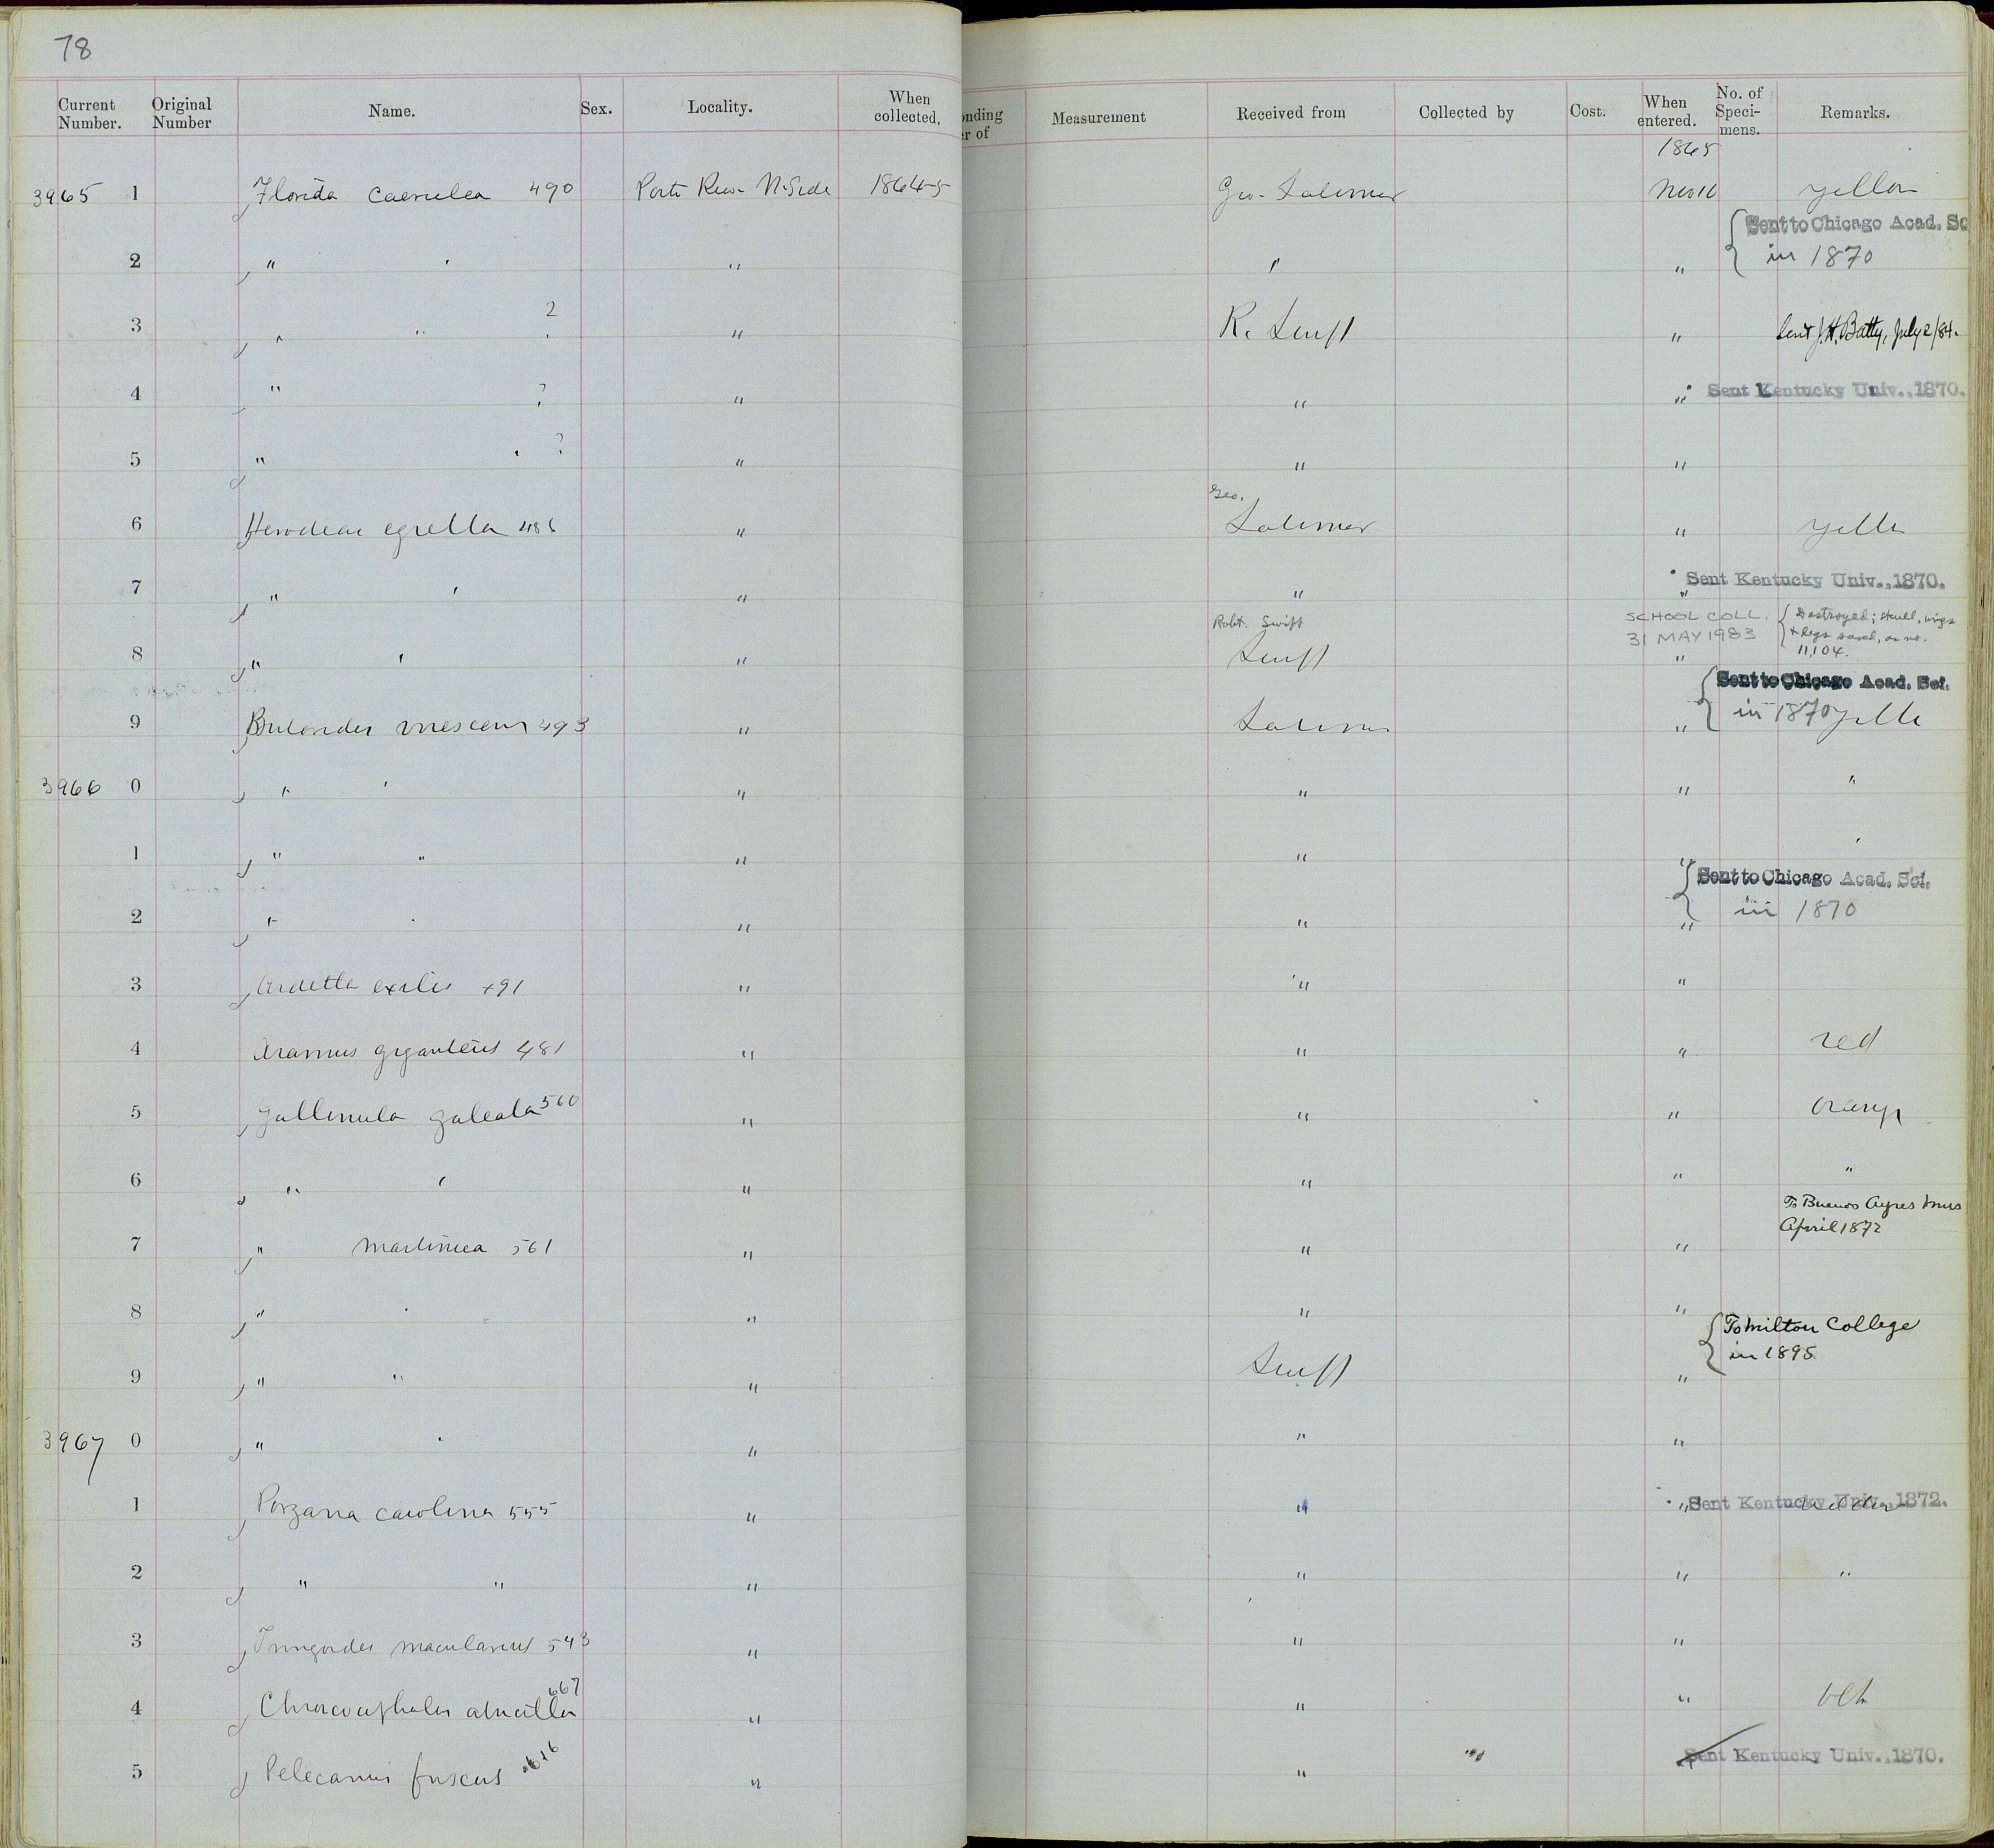 78
Current Number. Original Number Name. Sex. Locality. When collected. onding er of Measurement Received from Collected by Cost. When entered. No. of Speci-mens. Remarks.
1865
3965 1 Florida caerulea 490 Porto Rico - N. Side 1864-5 Geo. Latimer Nov 10 yellow
Sent to Chicago Acad. Sc
in 1870
2 " " " " "
3 " " ? " R. Swift " Sent J. H. Batty, July 2/84.
4 " ? " " " Sent Kentucky Univ., 1870.
5 " " ? " " "
Geo.
6 Herodias egretta 486 " Latimer " yello
7 " " " " " Sent Kentucky Univ., 1870.
Robt. Swift SCHOOL COLL. 31 MAY 1983 Destroyed; skull, wings
& legs saved, as no.
11,104.
8 " " " Swift "
Sent to Chicago Acad. Sci.
in 1870
9 Butorides virescens 493 " Latimer " yello
3966 0 " " " " " "
1 " " " " " "
Sent to Chicago Acad. Sci.
in 1870
2 " " " " "
3 Ardetta exilis 491 " " "
4 Aramus giganteus 481 " " " red
5 Gallinula galeata 560 " " " orange
6 " " " " " "
To Buenos Ayres Mus
April 1872
7 " martinica 561 " " "
8 " " " " "
To Milton College
in 1895
9 " " " Swift "
3967 0 " " " " "
1 Porzana carolina 555 " " " Sent Kentucky Univ., 1872.
2 " " " " " "
3 Tringoides macularius 543 " " "
4 Chroicocephalus atricilla 667 " " "
5 Pelecanus fuscus 616 " " " Sent Kentucky Univ., 1870.